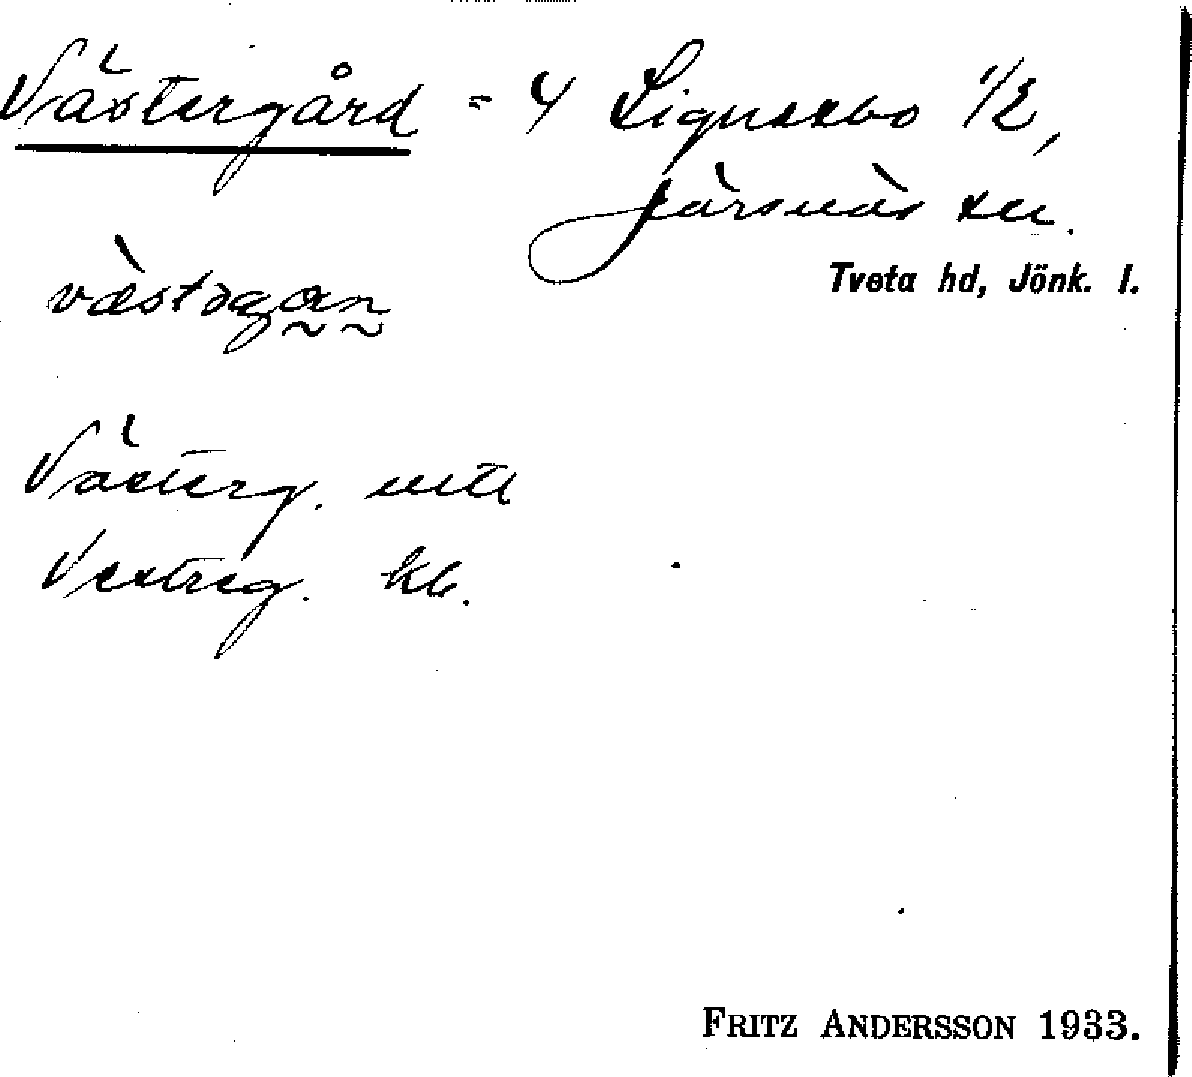 Västergård = 4 Lignekbo 1/2,
Järsnäs sn.
Tveta hd, Jönk. l.
västəgan
Västerg. uttl
Vestreg. kb.
FRITZ ANDERSSON 1933.